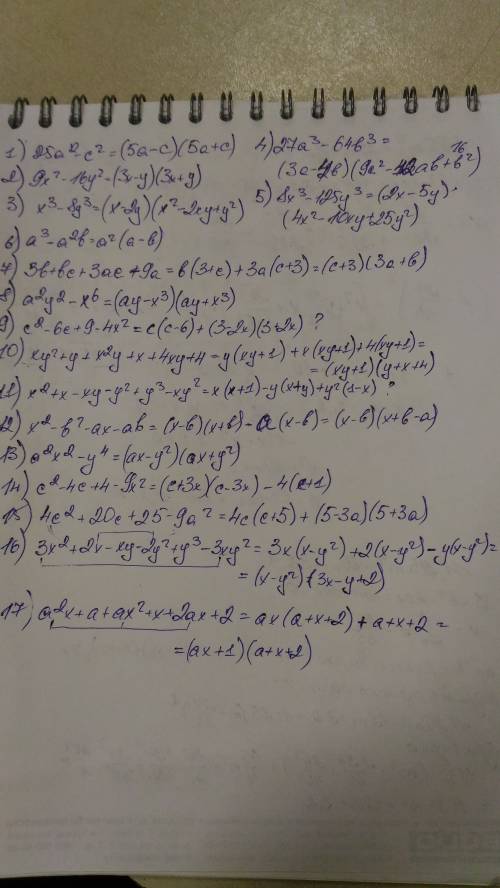 1) 25a² - c² = (5a-c)(5a+c)
2) 9x² - 16y² = (3x-y)(3x+y)
3) x³ - 8y³ = (x-2y)(x²-2xy+y²)
4) 27a³ - 64b³ =
(3a-4b)(9a²-12ab+b²)
16
5) 8x³ - 125y³ = (2x-5y)·
(4x²-10xy+25y²)
6) a³ - a²b = a²(a-b)
7) 3b+bc+3ac+9a = b(3+c)+3a(c+3) = (c+3)(3a+b)
8) a²y² - x⁶ = (ay-x³)(ay+x³)
9) c²-6c+9-4x² = c(c-6)+(3-2x)(3+2x) ?
10) xy²+y+x²y+x+4xy+4 = y(xy+1)+x(xy+1)+4(xy+1) =
= (xy+1)(y+x+4)
11) x²+x-xy-y²+y³-xy² = x(x+1)-y(x+y)+y²(1-x) ?
12) x²-b²-ax-ab = (x-b)(x+b)-a(x-b) = (x-b)(x+b-a)
13) a²x²-y⁴ = (ax-y²)(ax+y²)
14) c²-4c+4-9x² = (c+3x)(c-3x)-4(c+1)
15) 4c²+20c+25-9a² = 4c(c+5)+(5-3a)(5+3a)
16) 3x²+2x-xy-2y²+y³-3xy² = 3x(x-y²)+2(x-y²)-y(x-y²) =
= (x-y²)(3x-y+2)
17) a²x+a+ax²+x+2ax+2 = ax(a+x+2)+a+x+2 =
= (ax+1)(a+x+2)